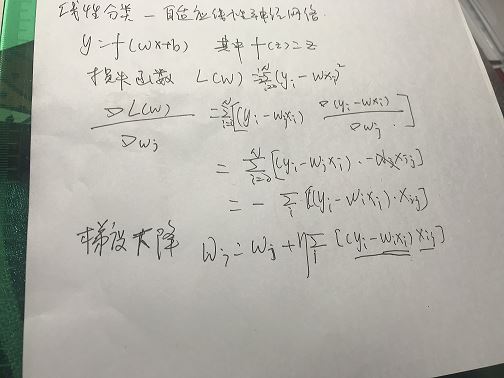 线性分类 — 自适应线性神经网络
y = f(wx+b) 其中 f(z) = z
损失函数 L(w) = Σ(yᵢ - wxᵢ)²
▽L(w) / ▽wⱼ = Σ[(yᵢ - wⱼxᵢ) ▽(yᵢ - wxᵢ) / ▽wⱼ]
= Σ[(yᵢ - wⱼxᵢ) · - xᵢⱼ]
= - Σᵢ [(yᵢ - wᵢxᵢ) · xᵢⱼ]
梯度下降 wⱼ = wⱼ + η Σᵢ [(yᵢ - wᵢxᵢ) xᵢⱼ]